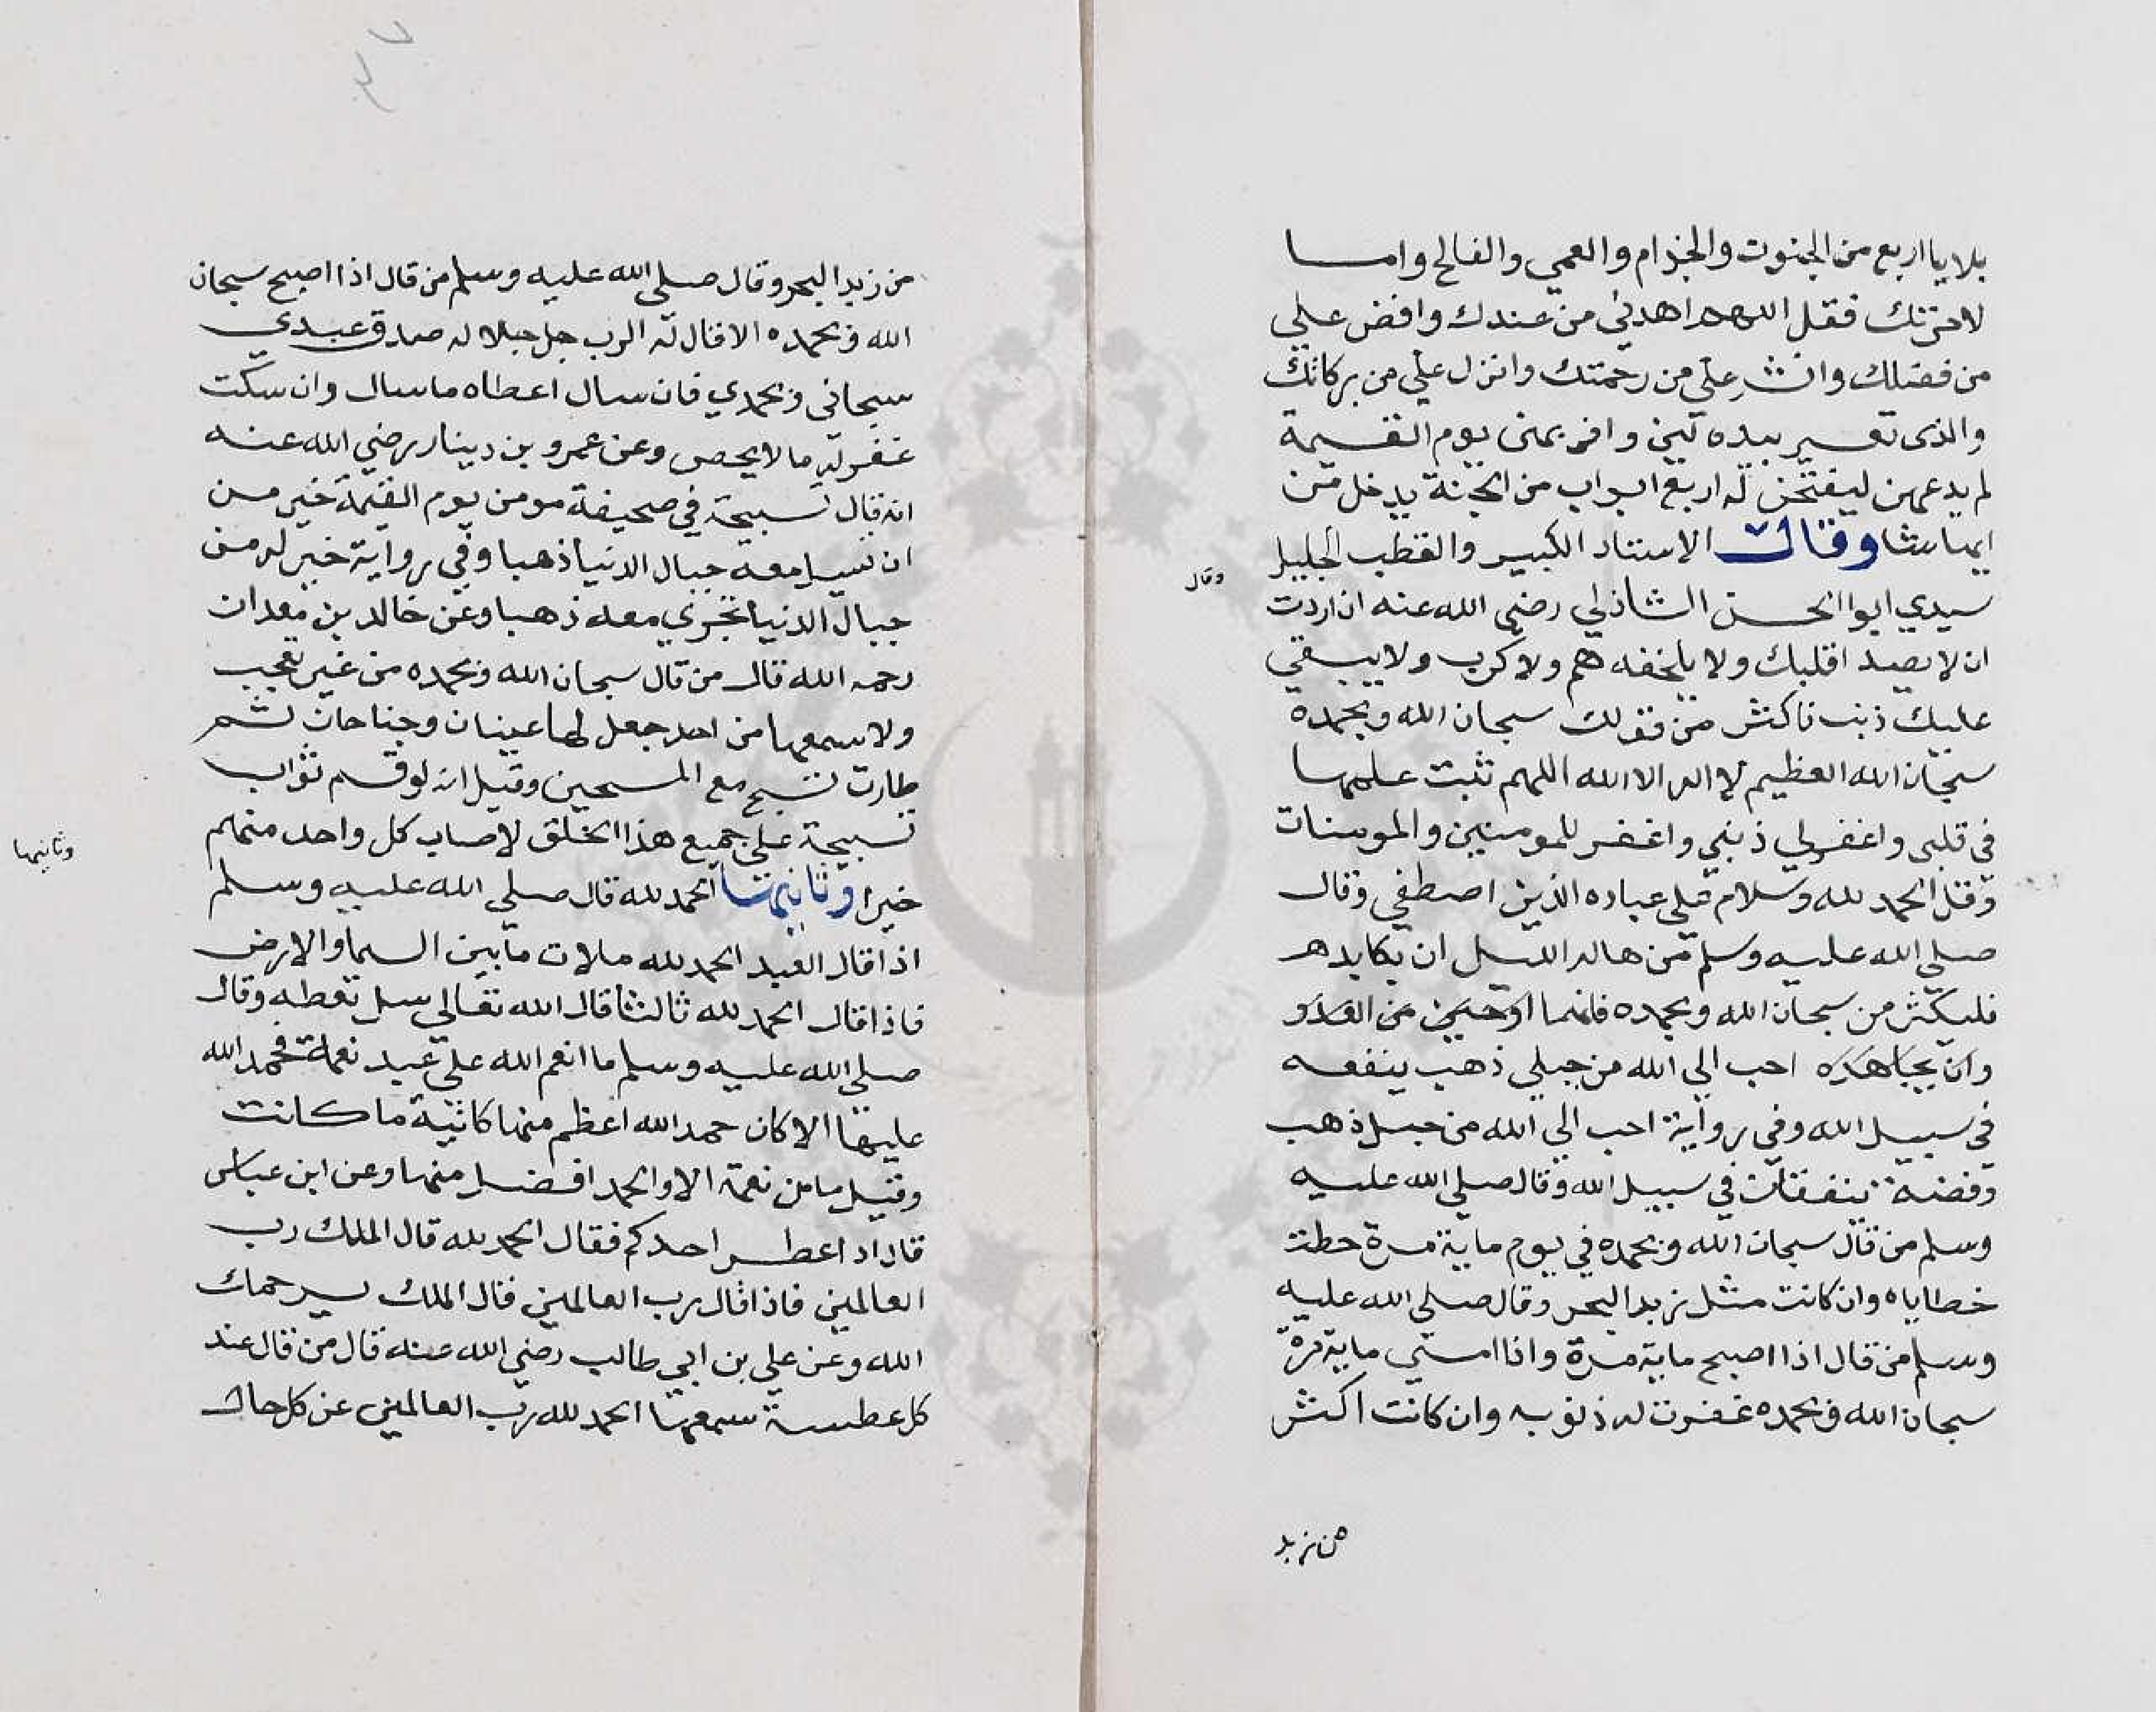 بلايا اربع من الجنون والجذام والعمي والفالج واما
لاخرتك فقل اللهم اهدني من عندك وافض علي
من فضلك وانشر علي من رحمتك وانزل علي من بركاتك
والذى نفسي بيده لين وافى بهن يوم القيمة
لم يدعهن ليفتحن له اربع ابواب من الجنة يدخل من
ايها شا وقال الاستاد الكبير والقطب الجليل
وقال
سيدي ابوا الحسن الشاذلي رضي الله عنه ان اردت
ان لا يصدا قلبك ولا يلحقه هم ولا كرب ولا يبقي
عليك ذنب فاكثر من قولك سبحان الله وبحمده
سبحان الله العظيم لا اله الا الله اللهم ثبت علمها
في قلبي واغفر لي ذنبي واغفر للمومنين والمومنات
وقل الحمد لله وسلام علي عباده الذين اصطفي وقال
صلي الله عليه وسلم من هاله الليل ان يكابده
فليكثر من سبحان الله وبحمده فانهما من العدو
وان يجاهده احب الي الله من جبلي ذهب ينفعه
في سبيل الله وفي رواية احب الي الله من جبل ذهب
وفضة ينفقان في سبيل الله وقال صلي الله عليه
وسلم من قال سبحان الله وبحمده في يوم ماية مرة حطت
خطاياه وان كانت مثل زبد البحر وقال صلي الله عليه
وسلم من قال اذا اصبح ماية مرة واذا امسي ماية مرة
سبحان الله وبحمده غفرت له ذنوبه وان كانت اكثر
من زبد
من زبد البحر وقال صلي الله عليه وسلم من قال اذا اصبح سبحان
الله وبحمده الا قال له الرب جل جلاله صدق عبدي
سبحاني وبحمدي فان سال اعطاه ما سال وان سكت
غفر له ما لا يحصى وعن عمرو بن دينار رضي الله عنه
انه قال تسبيحة في صحيفة مومن يوم القيمة خير من
ان تسيل معه جبال الدنيا ذهبا وفي رواية خير له من
جبال الدنيا تجري معه ذهبا وعن خالد بن معدان
رحمه الله قال من قال سبحان الله وبحمده من غير تعجب
ولا سمعها من احد جعل لها عينان وجناحان ثم
طارت تسبح مع المسبحين وقيل انه لو قسم ثواب
تسبيحة علي جميع هذا الخلق لاصاب كل واحد منهم
خيرا وثانيها الحمد لله قال صلي الله عليه وسلم
وثانيها
اذا قال العبد الحمد لله ملات ما بين السما والارض
فاذا قال الحمد لله ثالثا قال الله تعالي سل تعطه وقال
صلي الله عليه وسلم ما انعم الله علي عبد نعمة فحمد الله
عليها الا كان حمد الله اعظم منها كاينة ما كانت
وقيل ما من نعمة الا والحمد افضل منها وعن ابن عباس
قال اذا عطس احدكم فقال الحمد لله قال الملك رب
العالمين فاذا قال رب العالمين قال الملك يرحمك
الله وعن علي بن ابي طالب رضي الله عنه قال من قال عند
كل عطسة سمعها الحمد لله رب العالمين عن كل حال